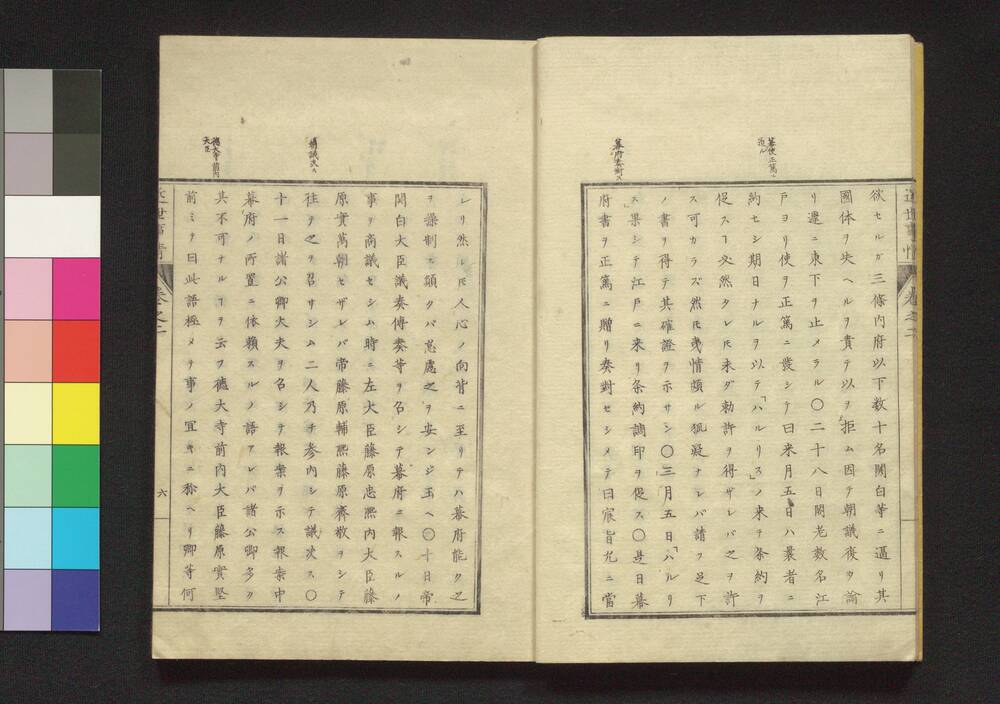 近世事情 卷之二
幕使正篤ニ迫ル
欲セルガ三條内府以下数十名関白等ニ逼リ其
國体ヲ失ヘルヲ責テ以ヲ拒ム因テ朝議後タ論
リ遽ニ東下ヲ止メラル〇二十八日閣老数名江
戸ヨリ使ヲ正篤ニ發シテ曰来月五日ハ曩者ニ
約セシ期日ナルヲ以テ「ハルリス」ノ来テ条約ヲ
促スヿ必然タレ𪜈未ダ勅許ヲ得ザレバ之ヲ許
ス可カラズ然𪜈夷情頗ル狐疑ナレバ請フ足下
ノ書ヲ得テ其確證ヲ示サン〇三月五日「ハルリ
ス」果シテ江戸ニ来リ条約調印ヲ促ス〇是日幕
府書ヲ正篤ニ贈リ奏對セシメテ曰宸旨允ニ當
レリ然レ𪜈人心ノ向背ニ至リテハ幕府能ク之
ヲ操制ス頭クバ叡慮之ヲ安ンジ玉ヘ〇十日帝
関白大臣議奏傳奏等ヲ召シテ幕府ニ報スルノ
事ヲ商議セシム時ニ左大臣藤原忠熙内大臣藤
原實萬朝セザレバ帝藤原輔熙藤原齊敬ヲシテ
往テ之ヲ召サシム二人乃チ参内シテ議决ス〇
十一日諸公卿大夫ヲ召シテ報案ヲ示ス報案中
幕府ノ所置ニ依頼スルノ語アレバ諸公卿多ク
其不可ナルヿヲ云フ德大寺前内大臣藤原實堅
前ミテ曰此語極メテ事ノ宜キニ称ヘリ卿等何
幕府奏對ス
将議决ス
德大寺前内大臣
近世事情 卷之二
六